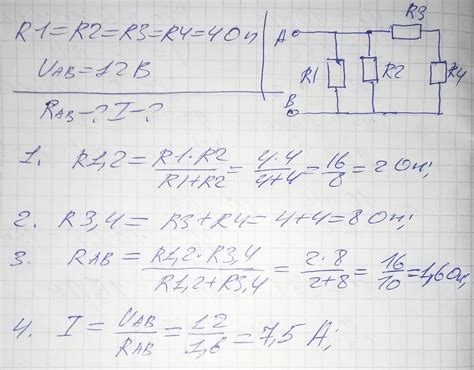 R1=R2=R3=R4=4Оm
UAB=12В
RAB-? I-?
A
B
R1
R2
R3
R4
1. R1,2 = R1·R2/R1+R2 = 4·4/4+4 = 16/8 = 2 Om;
2. R3,4 = R3+R4 = 4+4 = 8 Om;
3. RAB = R1,2·R3,4/R1,2+R3,4 = 2·8/2+8 = 16/10 = 1,6 Om;
4. I = UAB/RAB = 12/1,6 = 7,5 A;